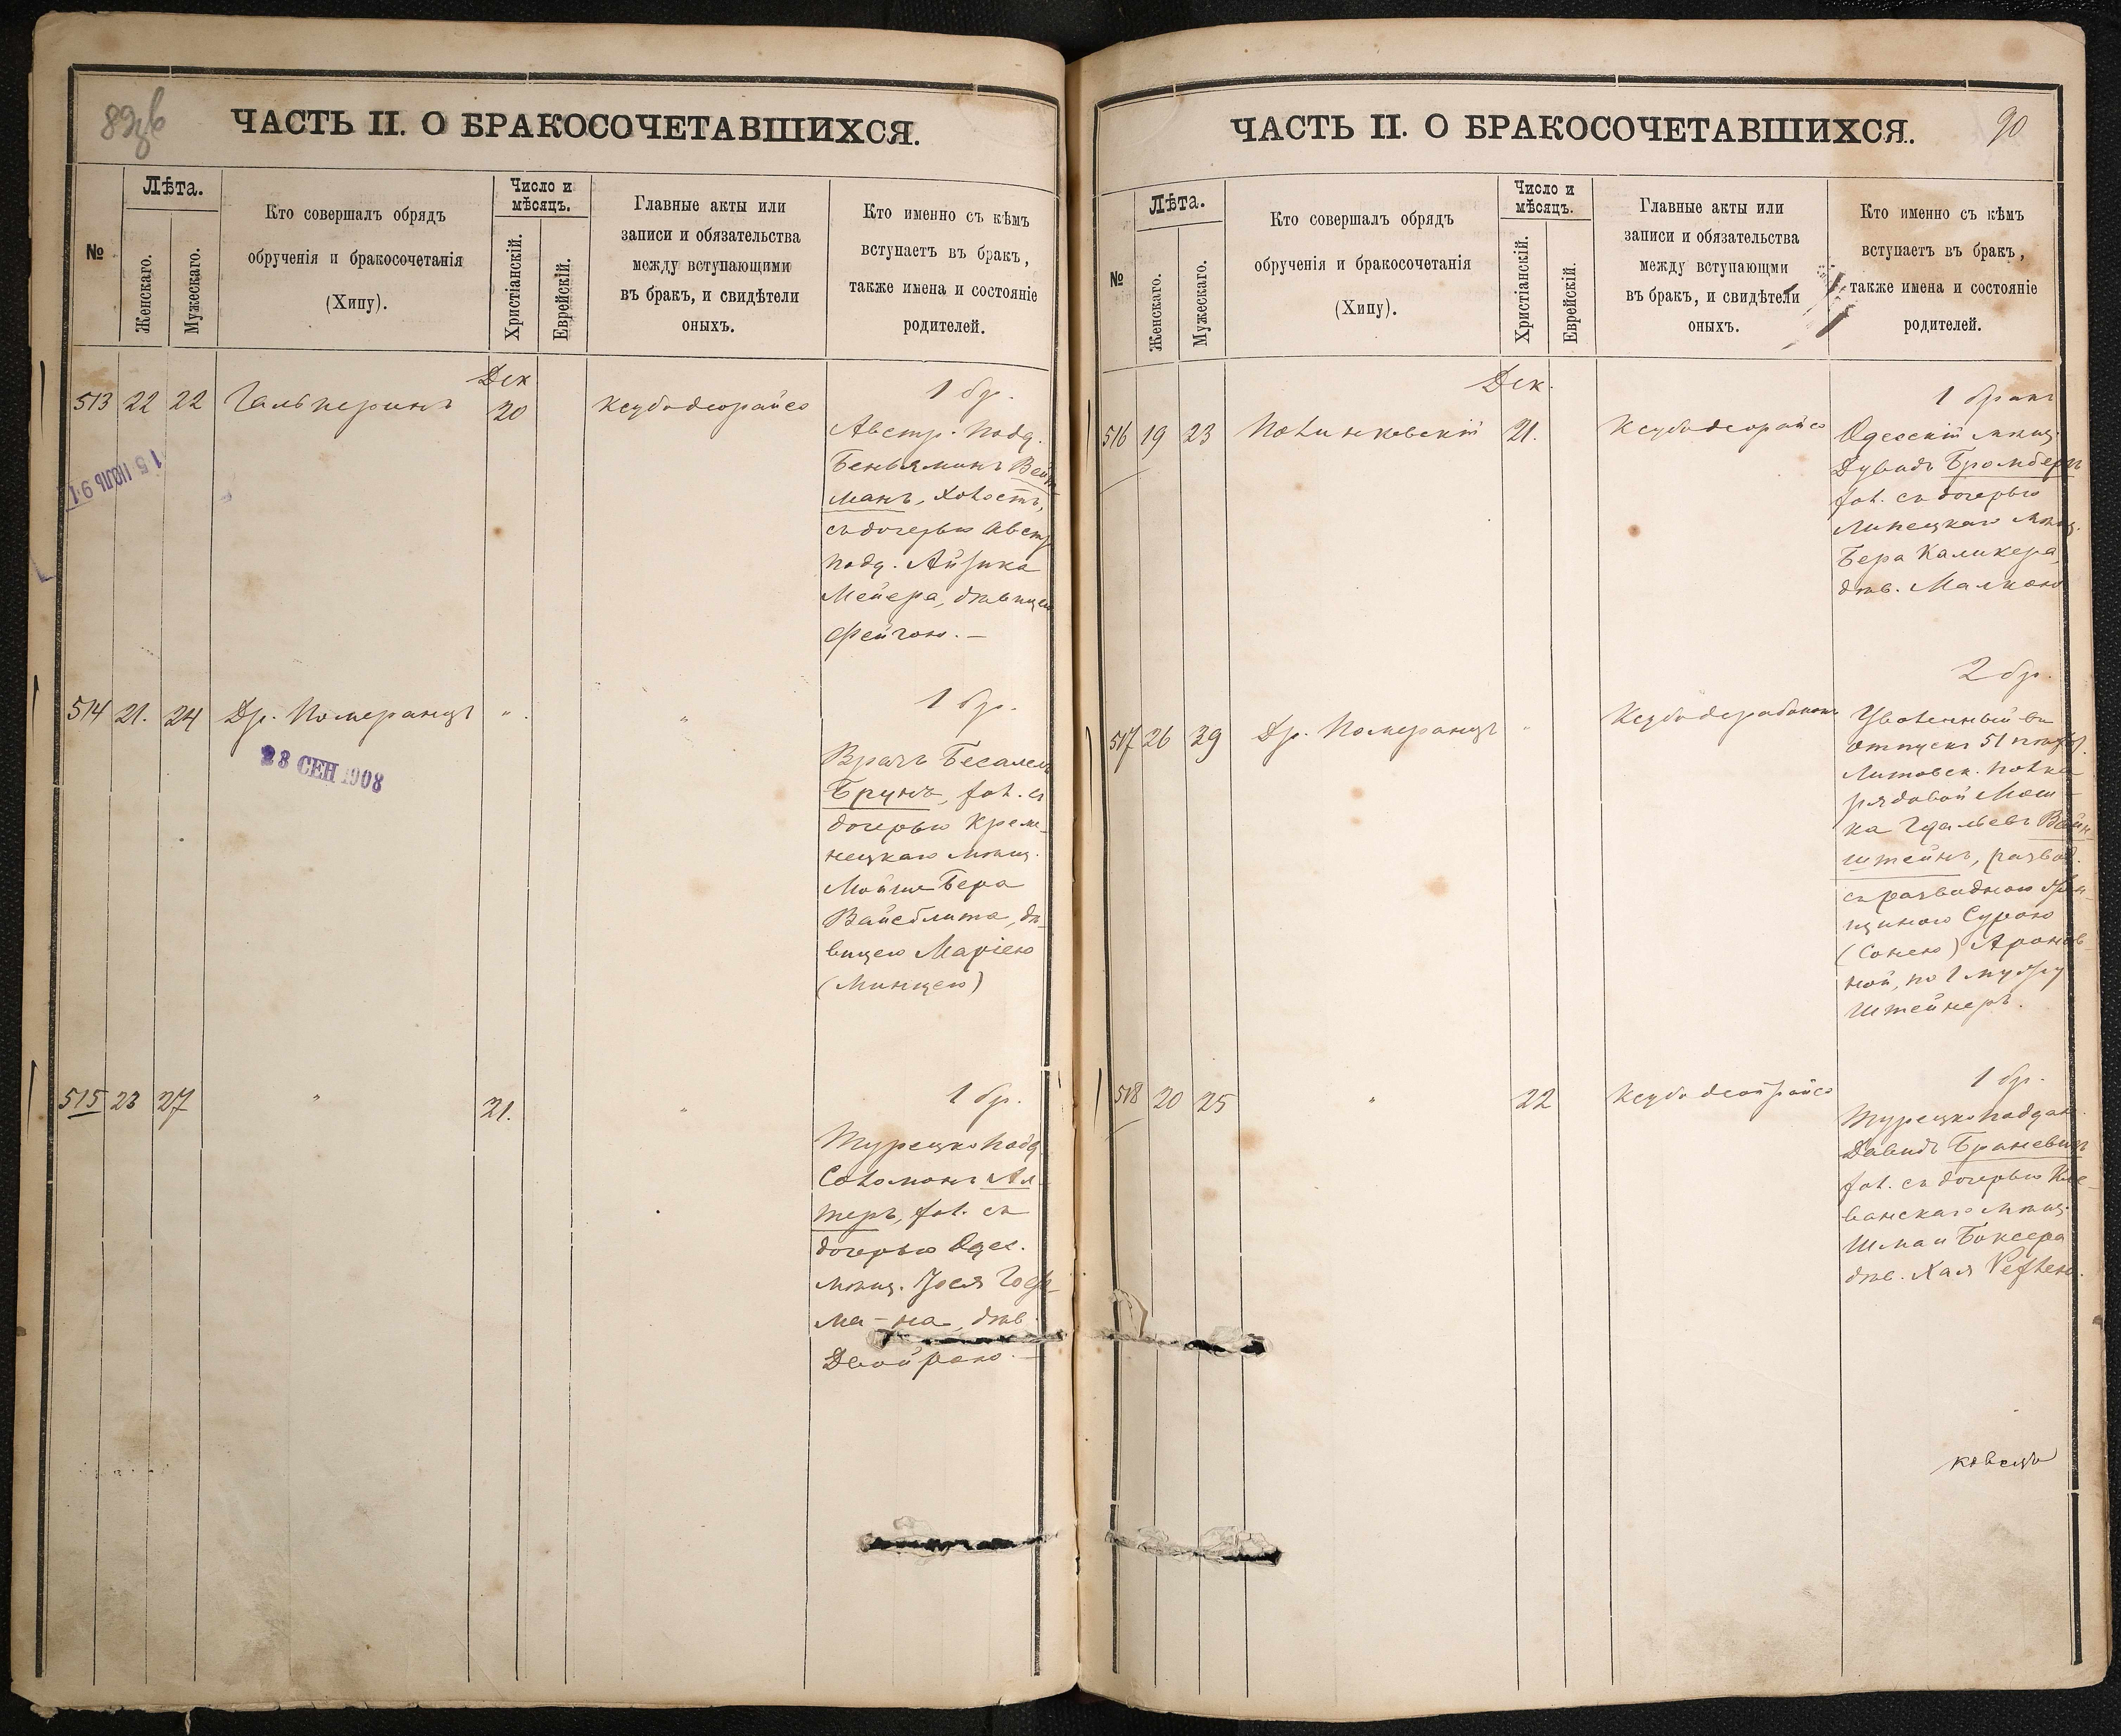 89 об
ЧАСТЬ II. О БРАКОСОЧЕТАВШИХСЯ.
№
Лѣта.
Женскаго.
Мужескаго.
Кто совершалъ обрядъ
обрученія и бракосочетанія
(Хипу).
Число и
мѣсяцъ.
Христіанскій.
Еврейскій.
Главные акты или
записи и обязательства
между вступающими
въ бракъ, и свидѣтели
оныхъ.
Кто именно съ кѣмъ
вступаетъ въ бракъ,
также имена и состояніе
родителей.
Дек
513 22 22 Гальперинъ 20 Ксубо деорайсо
1 бр.
Австр. подд.
Беньяминъ Вейс
манъ, холостъ,
съ дочерью Австр
подд. Айзика
Мейера, дѣвицею
Фейгою. —
15 ІЮЛЬ 191
514 21. 24 Др. Померанцъ " . "
28 СЕН 1908
1 бр.
Врачъ Бесалель
Брунъ, хол. съ
дочерью Креме-
нецкаго мѣщ.
Мойше Бера
Вайсблита, дѣ-
вицею Маріею
(Минцею)
515 23 27 " 21. "
1 бр.
Турецко подд
Соломонъ Ал-
теръ, хол. съ
дочерью Одес.
мѣщ. Гоф-
ма - на, дѣв
Двойрою. —
90
ЧАСТЬ II. О БРАКОСОЧЕТАВШИХСЯ.
№
Лѣта.
Женскаго.
Мужескаго.
Кто совершалъ обрядъ
обрученія и бракосочетанія
(Хипу).
Число и
мѣсяцъ.
Христіанскій.
Еврейскій.
Главные акты или
записи и обязательства
между вступающми
въ бракъ, и свидѣтели
оныхъ.
Кто именно съ кѣмъ
вступаетъ въ бракъ,
также имена и состояніе
родителей.
Дек.
516 19 23 Полинковскій 21. Ксубо деорайсо
1 бракъ
Одесскій мѣщ.
Дувидъ Бромбергъ
хол. съ дочерью
Липецкаго мѣщ.
Бера Каликера,
дѣв. Малкою
517 26 29 Др. Померанцъ " Ксубо дерабононъ
2 бр.
Уволенный въ
отпускъ 51 пѣх.
Литовск. полка
рядовой Мош-
ка Гдальевъ Вайн-
штейнъ, развед.
съ разводною жен-
щиною Сурою
(Сонею) Аронов-
ной, по 1 мужу
Штейнеръ.
518 20 25 " 22 Ксубо деойрайсо
1 бр.
Турецко поддан.
Давидъ Браневичъ
хол. съ дочерью
ванскаго мѣщ.
Боксера
дѣв. Хая